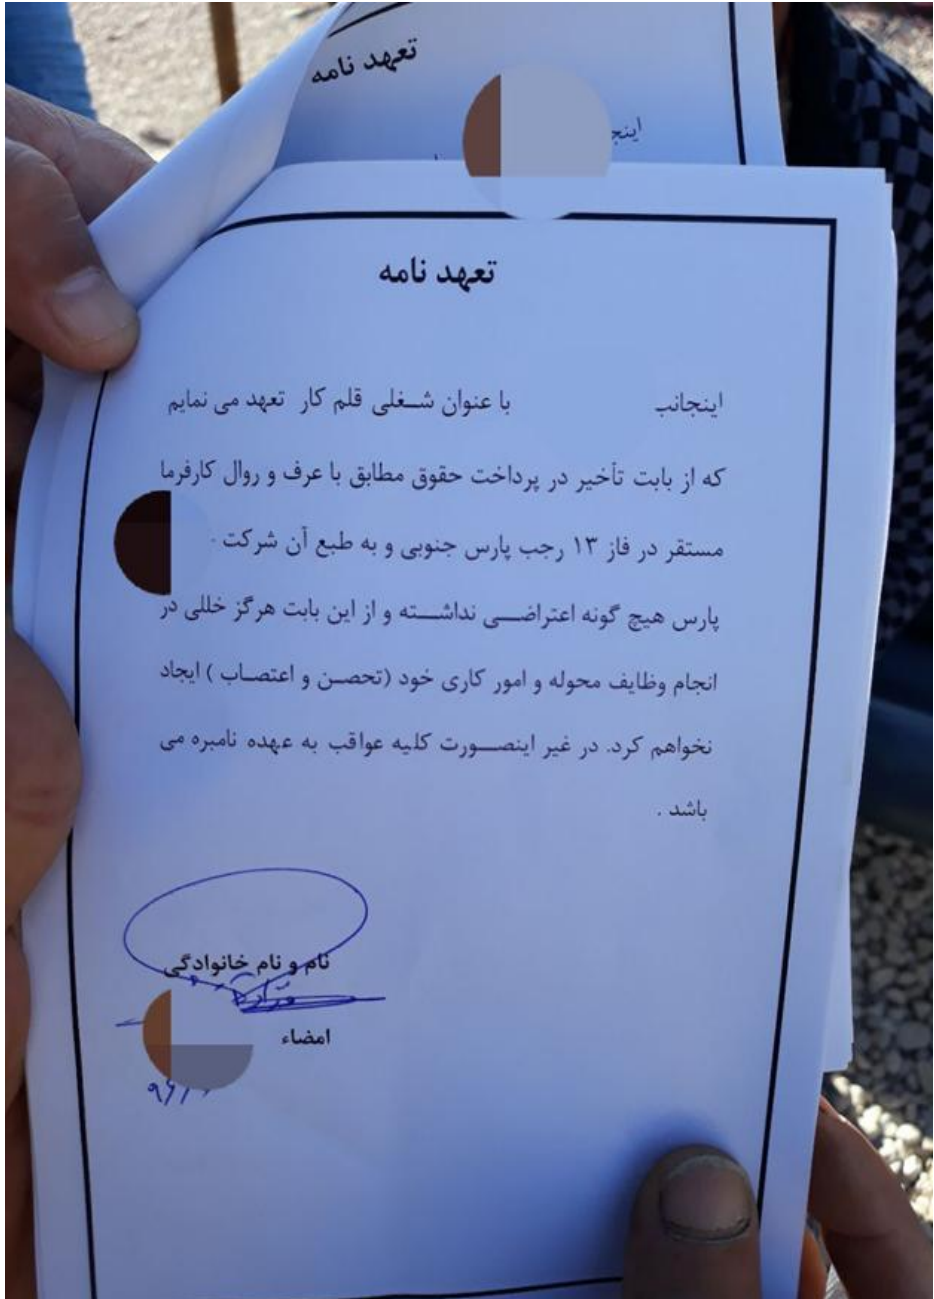 تعهد نامه
اینجـ
تعهد نامه
اینجانب با عنوان شـغلی قلم کار تعهد می نمایم
که از بابت تأخیر در پرداخت حقوق مطابق با عرف و روال کارفرما
مستقر در فاز ۱۳ رجب پارس جنوبی و به طبع آن شرکت
پارس هیچ گونه اعتراضـی نداشـته و از این بابت هرگز خللی در
انجام وظایف محوله و امور کاری خود (تحصـن و اعتصـاب ) ایجاد
نخواهم کرد. در غیر اینصـورت کلیه عواقب به عهده نامبره می
باشد .
نام و نام خانوادگی
امضاء